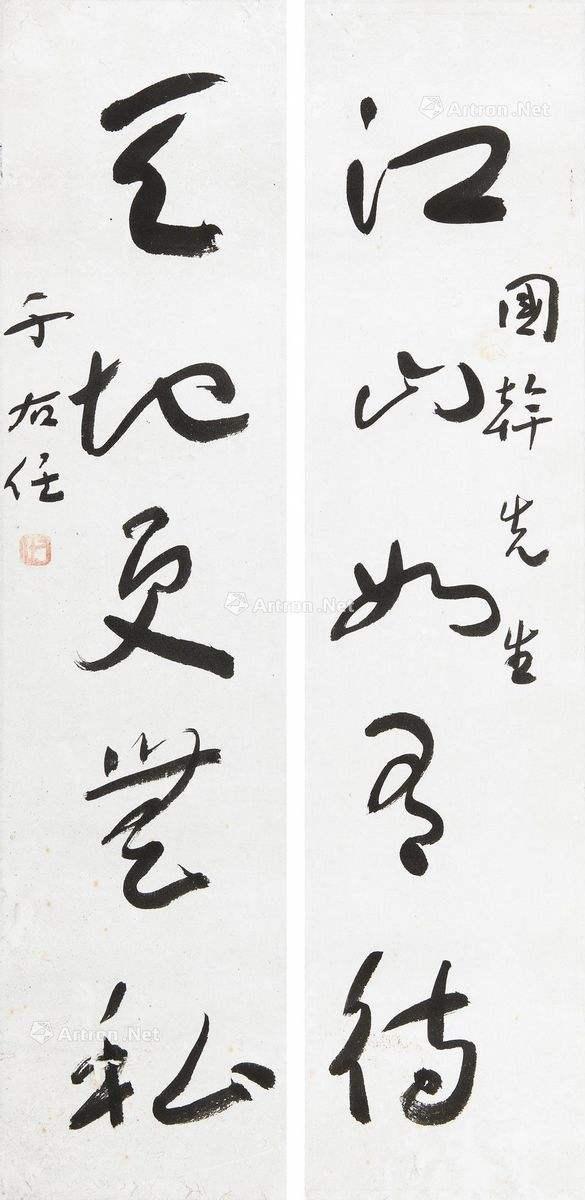 江山如有待
國幹先生
天地更無私
于右任
Artron.Net
Artron.Net
Artron.Net